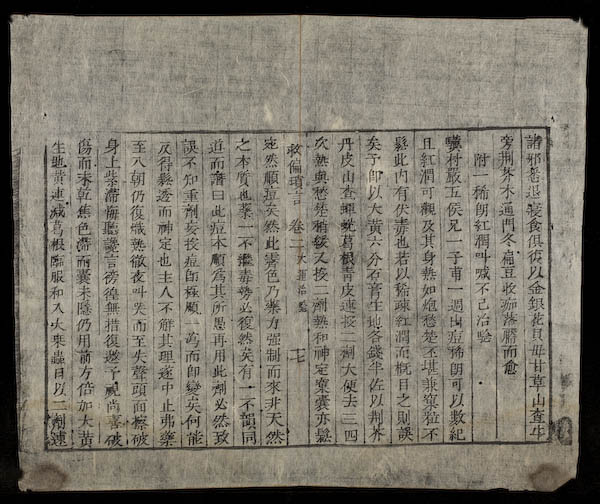 諸邪悉退寢食俱復以金銀花貝母甘草山查牛
旁荆芥木通門冬扁豆收痂落膳而愈
附一稀朗紅潤叫喊不已治驗
村嚴五侯兄一子甫一週出痘稀朗可以數紀
且紅潤可觀及其身熱如炮愁楚不堪兼窠粒不
鬆此內有伏毒也若以稀疎紅潤而概目之則誤
矣予卽以大黃六分石膏生地各錢半佐以荆芥
丹皮山查蟬蛻葛根青皮連投二劑大便去三四
次熱與愁楚稍緩又投二劑熱和神定窠囊亦鬆
救偏瑣言 卷二 治驗 十七
迤然順痘矣然此霽色乃藥力強制而來非天然
之本質也藥一不繼毒勢必復然矣有一不韻同
道而譖曰此痘本順爲其所愚再用此劑必然致
誤不知重劑妄投痘卽極順一爲而卽變矣何能
反得鬆透而神定也主人不解其理遂中止弗藥
至八朝仍復熾熱徹夜叫哭而至失聲頭面擦破
身上紫滯悔聽讒言徬徨無措復邀予視尚喜破
傷而未乾焦色滯而囊未隱仍用前方倍加大黃
生地黃連減葛根臨服和入大桑蟲日以二劑連